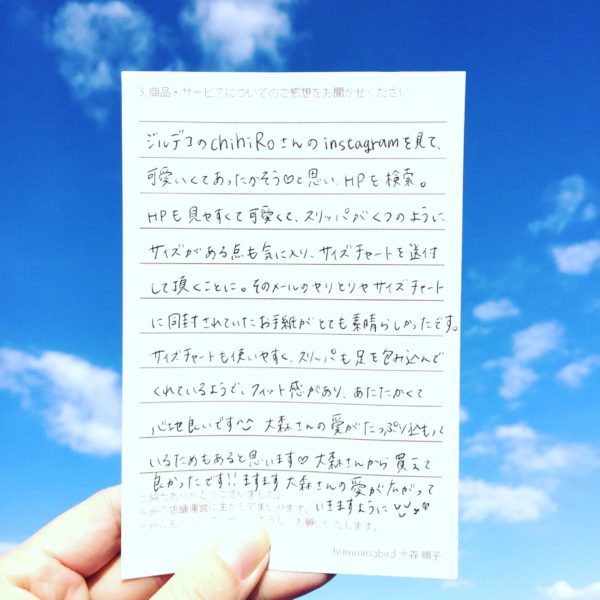 3.商品・サービスについてのご感想をお聞かせください
ジルデコのchihiRoさんのinstagramを見て、
可愛いくてあったかそう♡と思い、HPを検索。
HPも見やすくて可愛くて、スリッパがくつのように
サイズがある点も気に入り、サイズチャートを送付
して頂くことに。そのメールのやりとりやサイズチャート
に同封されていたお手紙がとても素晴らしかったです。
サイズチャートも使いやすく、スリッパも足を包み込んで
くれているようで、フィット感があり、あたたかくて
心地良いです^^ 大森さんの愛がたっぷり込もって
いるためもあると思います♡大森さんから買えて
良かったです!!ますます大森さんの愛が広がって
いきますように
ありがとうございました。
店舗運営に生かしてまいります。
お願いいたします。
hummingbird 大森 順子